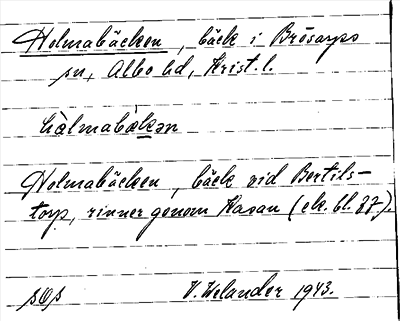 Holmabäcken, bäck i Brösarps
sn, Albo hd, Krist. l.
Holmabäcken, bäck vid Bertils-
torp, rinner genom Kasan (ek. bl. 87).
V. Welander 1943.